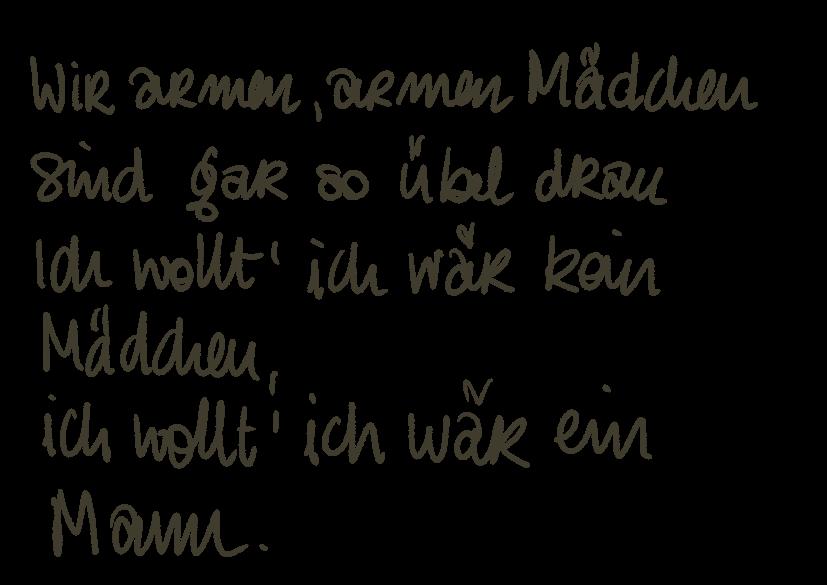 Wir armen, armen Mädchen
sind gar so übel dran
Ich wollt' ich wär kein
Mädchen,
ich wollt' ich wär ein
Mann.